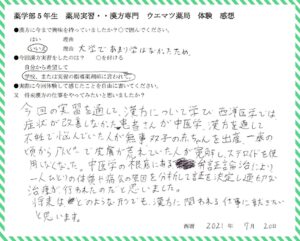 薬学部5年生　薬局実習・・漢方専門　ウエマツ薬局　体験　感想
●漢方に今まで興味を持っていましたか？○で囲んでください。
はい　理由
いいえ　理由　大学であまり学ばなかったため。
●今回漢方実習をしたのは？　○を付ける
自分から希望して
学校、または実習の指導薬剤師に言われて。
●実際に今回体験して感じたことを自由に書いてください。
又　将来漢方の仕事をやってみたいと思いましたか？
今回の実習を通して、漢方について学び、西洋医学では
症状が改善しなかった患者さんが中医学、漢方を通して
不妊で悩んでいた人が無事双子の赤ちゃんを出産、一歳の
頃からアトピーで皮膚が荒れていた人が寛解し、ステロイドを使
用しなくなった。中医学の根底にある弁証論治により
一人ひとりの体質や病気の原因を分析して証を決定し適切な
治療が行われたのだと思いました。
将来はどのような形でも、漢方に関われる仕事に就きたい
と思います。
西暦　2021年　7月　20日